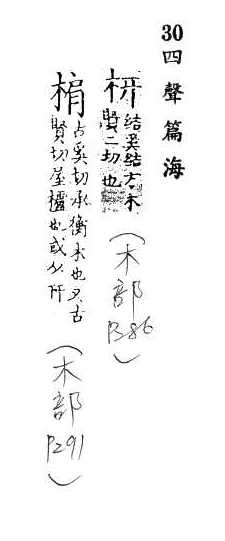 30四聲篇海
枅
結奚結 大木
賢二切也
（木部
P286）
枅
古奚切承衡木也又古
賢切屋櫨也或从幵
（木部
P291）